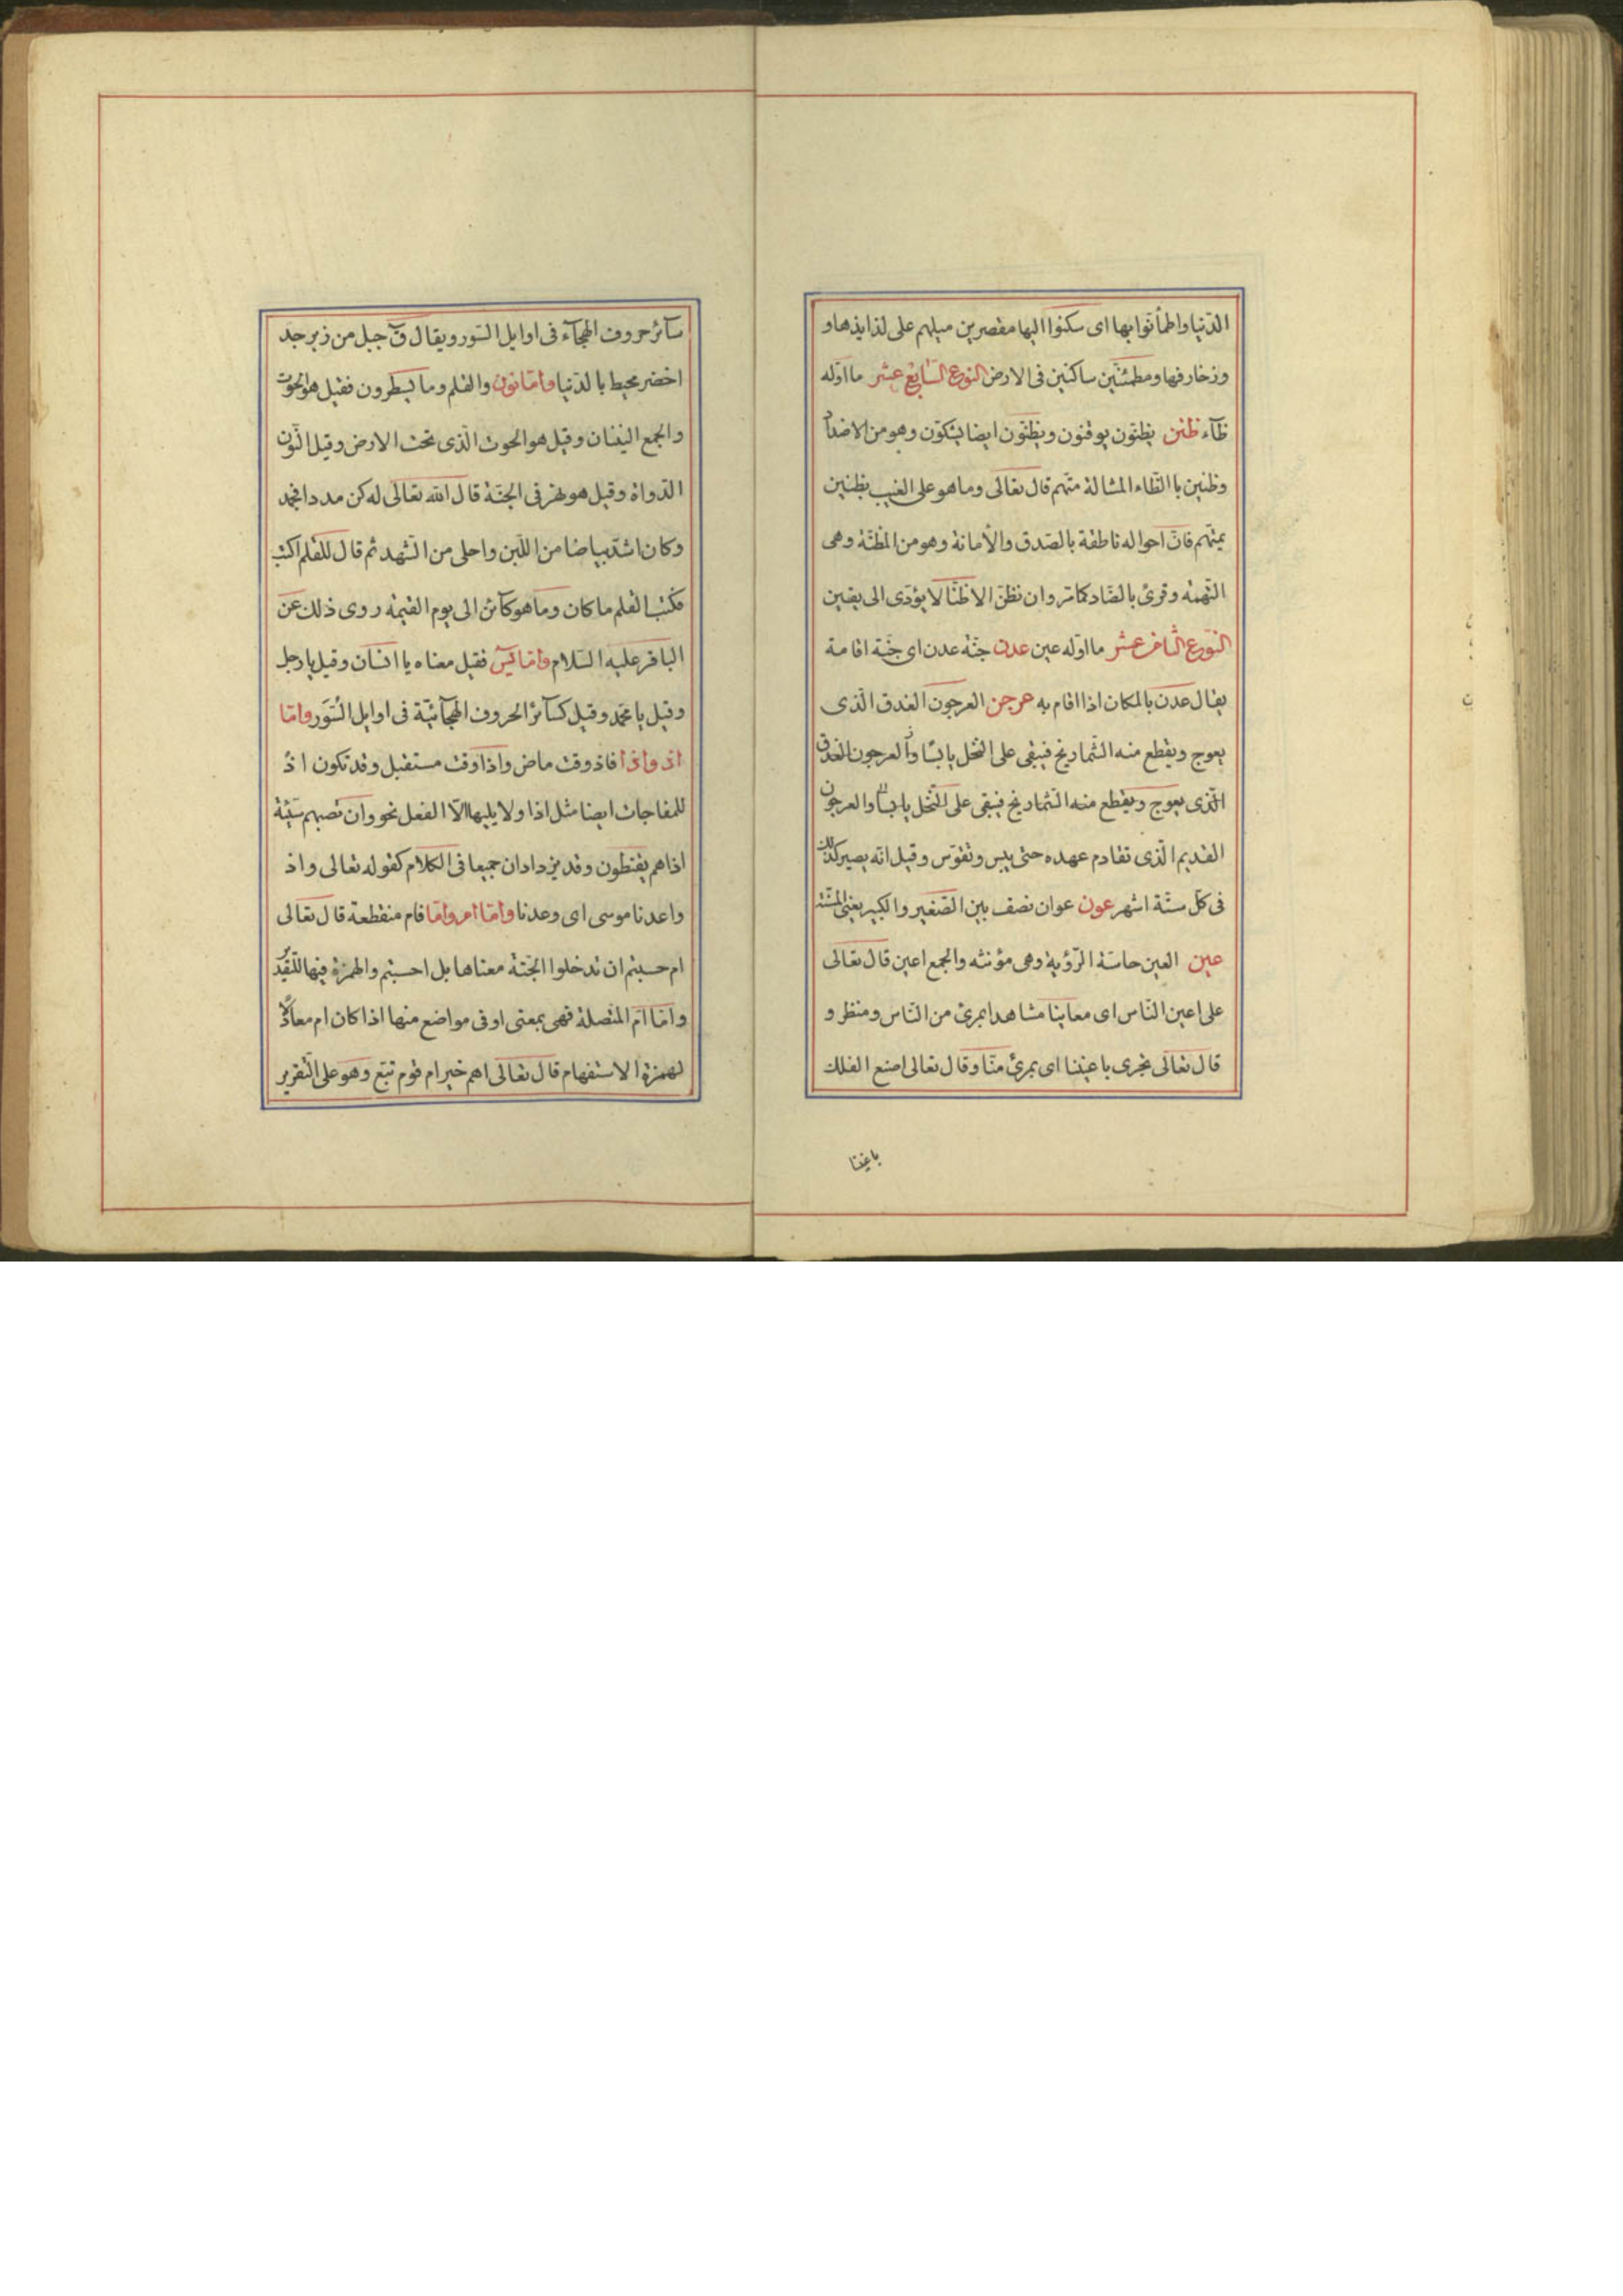 الدّنيا واطمأنوا بها اى سكنوا اليها مقصرين ميلهم على لذايذها و
وزخارفها ومطمئنّين ساكنين فى الارض النوع السّابع عشر ما اوّله
ظآء ظنن يظنّون يوقنون ويظنّون ايضا يشكّون وهو من الاضداد
وظنين باالظّاء المشالة متّهم قال تعالى وما هو على الغيب بظنين
بمتّهم فانّ احواله ناطقة بالصّدق والأمانة وهو من المظنّة وهى
التّهمة وقرئ بالضّاد كما تر وان نظنّ الا ظنّا لا يؤدّى الى يقين
النّوع الثامن عشر ما اوّله عين عدن جنّة عدن اى جنّة اقامة
يقال عدن بالمكان اذا اقام به عرجن العرجون الغدق الّذى
يعوج ويقطع منه الشّماريخ فيبقى على النخل يابسًا والعرجون الغدق
الّذى يعوج ويقطع منه الشّماريخ فيبقى على النّخل يابسًا والعرجون
القديم الّذى تقادم عهده حتى يبس وتقوّس وقيل انّه يصير كذلك
فى كلّ ستّة اشهر عون عوان نصف بين الصّغير والكبير يعنى المسنّة
عين العين حاسّة الرّؤية وهى مؤنثه والجمع اعين قال تعالى
على اعين النّاس اى معاينا مشاهدا بمرئ من النّاس ومنظر و
قال تعالى تجرى باعيننا اى بمرئ منّا وقال تعالى اصنع الفلك
باعيننا
سآئر حروف الهجآء فى اوايل السّور ويقال ق جبل من زبرجد
اخضر محيط بالدّنيا وامّا نون والقلم وما يسطرون فقيل هو الحوت
والجمع النينان وقيل هو الحوت الّذى تحت الارض وقيل النّون
الدّواة وقيل هو نهر فى الجنّة قال الله تعالى له كن مددا فجمد
وكان اشدّ بياضا من اللّبن واحلى من الشّهد ثم قال للقلم اكتب
فكتب القلم ما كان وما هو كآئن الى يوم القيمة روى ذلك عن
الباقر عليه السّلام وامّا يس فقيل معناه يا انسان وقيل يا رجل
وقيل يا محمّد وقيل كسآئر الحروف الهجآئيّة فى اوايل السّور وامّا
اذ واذا فاذ وقت ماض واذا وقت مستقبل وقد تكون اذ
للمفاجات ايضا مثل اذا ولا يليها الّا الفعل نحو وان تصبهم سيّئة
اذا هم يقنطون وقد يزدادان جميعا فى الكلام كقوله تعالى واذ
واعدنا موسى اى وعدنا وامّا ام وامّا فام منقطعة قال تعالى
ام حسبتم ان تدخلوا الجنّة معناها بل احسبتم والهمزة فيها للتّقدير
وامّا ام المتّصلة فهى بمعنى او فى مواضع منها اذا كان ام معادلًا
لهمزة الاستفهام قال تعالى اهم خير ام قوم تبّع وهو على التّقرير